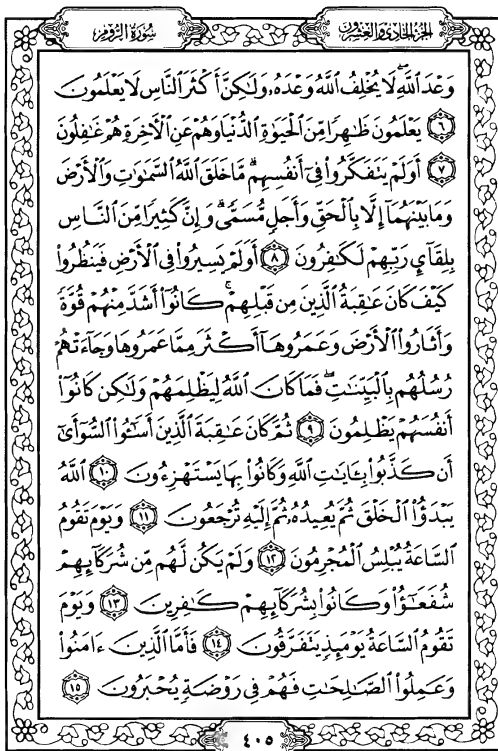 الجزء الحادي والعشرون
سورة الروم
وَعْدَ ٱللَّهِ ۖ لَا يُخْلِفُ ٱللَّهُ وَعْدَهُۥ وَلَٰكِنَّ أَكْثَرَ ٱلنَّاسِ لَا يَعْلَمُونَ
﴿٦﴾ يَعْلَمُونَ ظَٰهِرًا مِّنَ ٱلْحَيَوٰةِ ٱلدُّنْيَا وَهُمْ عَنِ ٱلْءَاخِرَةِ هُمْ غَٰفِلُونَ
﴿٧﴾ أَوَلَمْ يَتَفَكَّرُوا۟ فِىٓ أَنفُسِهِم ۗ مَّا خَلَقَ ٱللَّهُ ٱلسَّمَٰوَٰتِ وَٱلْأَرْضَ
وَمَا بَيْنَهُمَآ إِلَّا بِٱلْحَقِّ وَأَجَلٍ مُّسَمًّى ۗ وَإِنَّ كَثِيرًا مِّنَ ٱلنَّاسِ
بِلِقَآئِ رَبِّهِمْ لَكَٰفِرُونَ ﴿٨﴾ أَوَلَمْ يَسِيرُوا۟ فِى ٱلْأَرْضِ فَيَنظُرُوا۟
كَيْفَ كَانَ عَٰقِبَةُ ٱلَّذِينَ مِن قَبْلِهِمْ ۚ كَانُوٓا۟ أَشَدَّ مِنْهُمْ قُوَّةً
وَأَثَارُوا۟ ٱلْأَرْضَ وَعَمَرُوهَآ أَكْثَرَ مِمَّا عَمَرُوهَا وَجَآءَتْهُمْ
رُسُلُهُم بِٱلْبَيِّنَٰتِ ۖ فَمَا كَانَ ٱللَّهُ لِيَظْلِمَهُمْ وَلَٰكِن كَانُوٓا۟
أَنفُسَهُمْ يَظْلِمُونَ ﴿٩﴾ ثُمَّ كَانَ عَٰقِبَةَ ٱلَّذِينَ أَسَٰٓـُٔوا۟ ٱلسُّوٓأَىٰٓ
أَن كَذَّبُوا۟ بِـَٔايَٰتِ ٱللَّهِ وَكَانُوا۟ بِهَا يَسْتَهْزِءُونَ ﴿١٠﴾ ٱللَّهُ
يَبْدَؤُا۟ ٱلْخَلْقَ ثُمَّ يُعِيدُهُۥ ثُمَّ إِلَيْهِ تُرْجَعُونَ ﴿١١﴾ وَيَوْمَ تَقُومُ
ٱلسَّاعَةُ يُبْلِسُ ٱلْمُجْرِمُونَ ﴿١٢﴾ وَلَمْ يَكُن لَّهُم مِّن شُرَكَآئِهِمْ
شُفَعَٰٓؤُا۟ وَكَانُوا۟ بِشُرَكَآئِهِمْ كَٰفِرِينَ ﴿١٣﴾ وَيَوْمَ
تَقُومُ ٱلسَّاعَةُ يَوْمَئِذٍ يَتَفَرَّقُونَ ﴿١٤﴾ فَأَمَّا ٱلَّذِينَ ءَامَنُوا۟
وَعَمِلُوا۟ ٱلصَّٰلِحَٰتِ فَهُمْ فِى رَوْضَةٍ يُحْبَرُونَ ﴿١٥﴾
٤٠٥